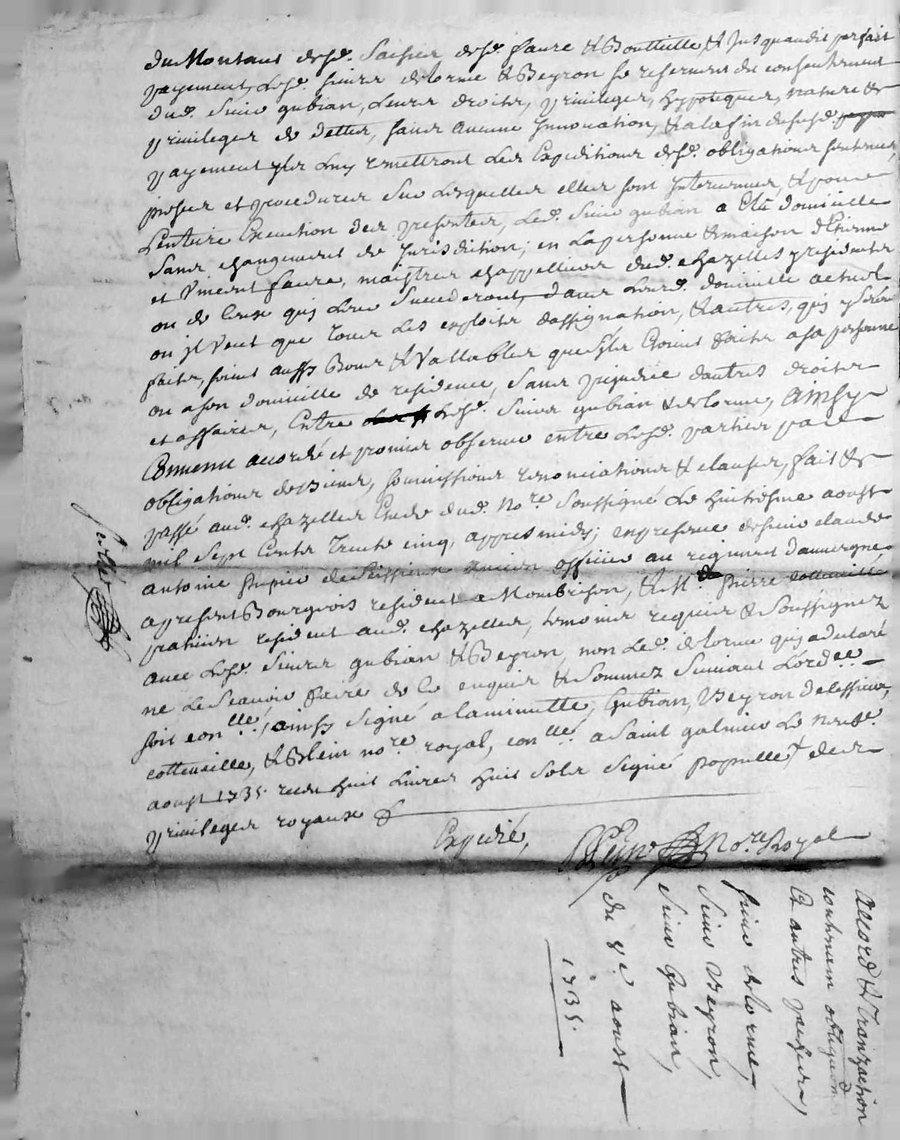 du Montant desd. Saisies desd. faure & Bouteille, & jusqu'audit parfait
payement, lesd. sieurs delorme & Beyron se reservent du consentement
dud. Sieur gubian, leurs droits, privileges, hypoteques, nature &
privileges de dettes, sans aucune Innovation, & a la fin desd.
payement ils luy remettront les Expeditions desd. obligations sentences,
et procedures sur lesquelles elles sont Intervenues, & pour
l'entiere Execution des presentes, led. Sieur gubian a Elu domicille
sans changement de Jurisdition, en la personne & maison d'Ethienne
et Vincent faure, maistres chappelliers dud. chazelles presidents
ou de Ceux quy leur Succederont, dans leurd. domicille actuel
ou jl veut que tous les exploits d'assignation, & autres, quy y seront
faits, soint aussy Bons & Vallables que s'ils Etoint faits a sa personne
ou a son domicille de residence, sans prejudice d'autres droits
et affaires, Entre lesd. Sieurs gubian & delorme, Ainsy
Convenu accordé et promis observer entre lesd. parties par
obligations de biens, soumissions renonciations & clauses, fait &
passé aud. chazelles Etude dud. Nore Soussigné Le huitiesme aoust
mil Sept Cents Trente cinq, appres midy; en presence de sieur claude
antoine pupier de lessieux ancien officier au regiment d'auvergne
a present Bourgeois resident a Mombrison, & Me pierre cotteusille
praticien resident aud. chazelles, temoins requis & Soussignez
avec lesd. Sieurs gubian & Beyron, non led. delorme quy a declaré
ne le Scavoir faire de ce enquis & Sommez Suivant l'ordce
soit conllé, ainsy Signé a la minutte, Gubian, Beyron delessieux,
cotteusille, & Blein nore royal, conllé a Saint galmier Le neufe
aoust 1735. receu huit Livres huit Sols Signé des
privileges royaux &
Expedié,
Blein Nore Royal
Scellé
accord & Tranzaction
contenant obligaon
Et autres pactes,
sieur delorme,
Sieur Beyron,
Sieur Gubian,
du 8e aoust
1735.